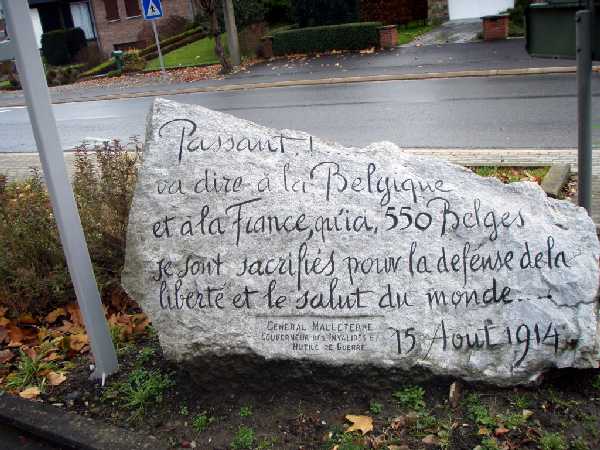 Passant!
va dire à la Belgique
et à la France, qu'ici, 550 Belges
se sont sacrifiés pour la défense de la
liberté et le salut du monde...
GÉNÉRAL MALLETERRE
GOUVERNEUR DES INVALIDES ET
MUTILÉ DE GUERRE
15 Août 1914